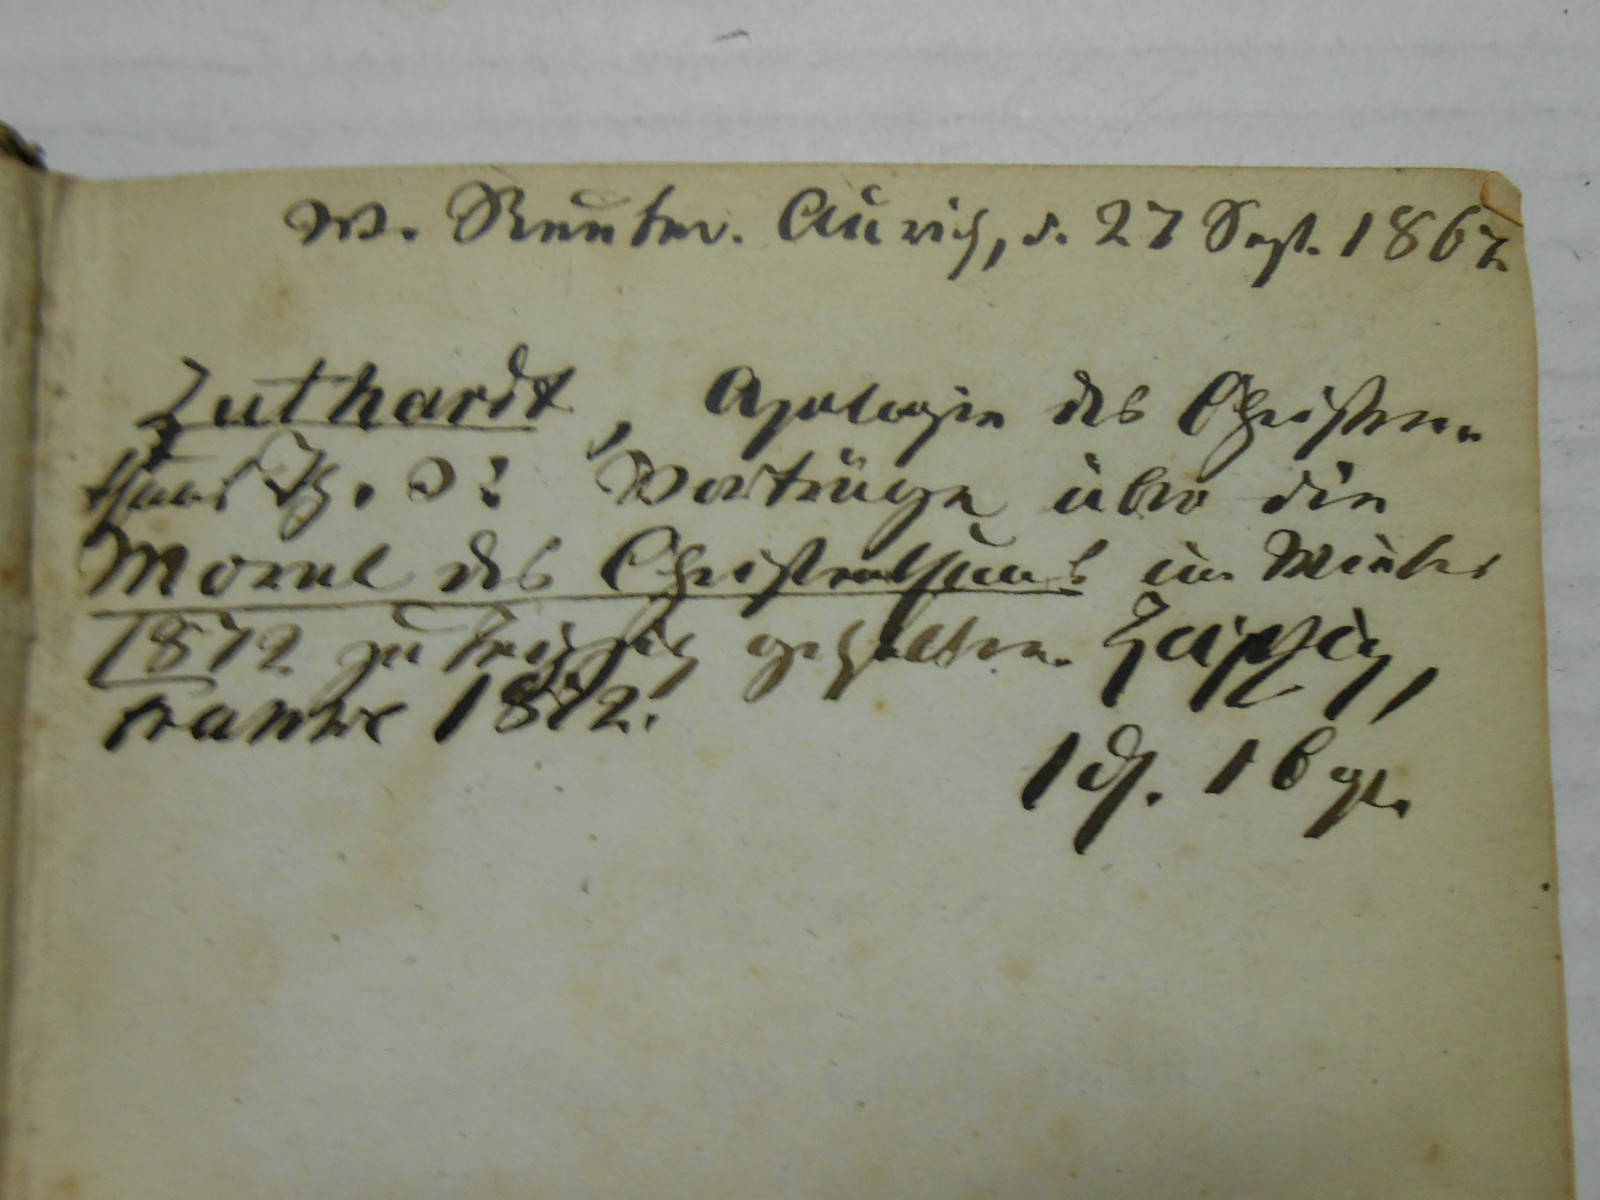 W. Reuter. Aurich, d. 27 Sept. 1867.
Luthardt, Apologie des Christen-
thums Th. 3: Vorträge über die
Moral des Christenthums im Winter
1872 zu Leipzig gehalten. Leipzig,
Franke 1872.
1 16 gr.